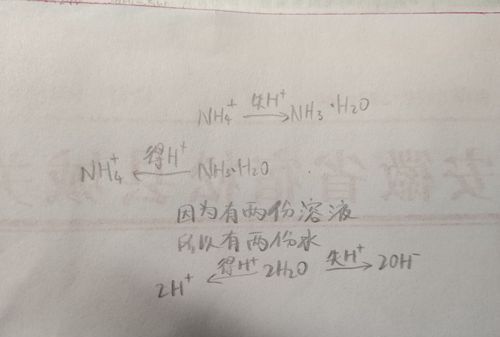 NH₄⁺ 失H⁺→ NH₃·H₂O
NH₄⁺ ←得H⁺ NH₃·H₂O
因为有两份溶液
所以有两份水
2H⁺ ←得H⁺ 2H₂O 失H⁺→ 2OH⁻
安徽省